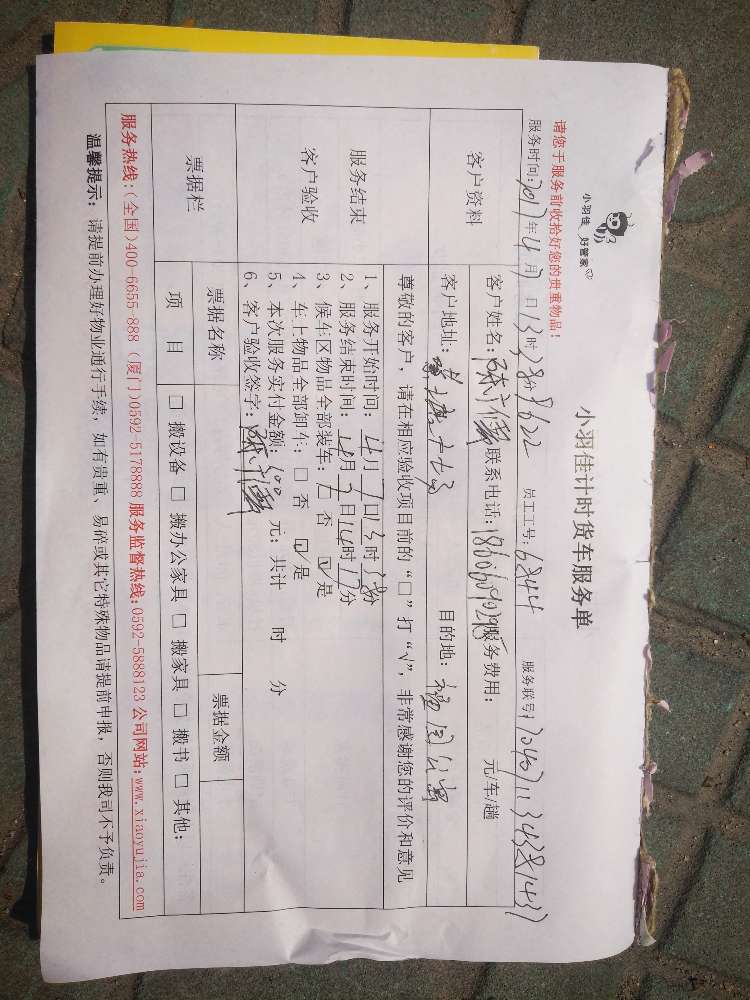 小羽佳 好管家
小羽佳计时货车服务单
请您于服务前收拾好您的贵重物品!
服务时间:2017年4月7日13时38分 8622 员工工号:6844 服务联号:
客户资料
客户姓名: 联系电话: 服务费用: 元/车/趟
客户地址: 目的地:
服务结束
客户验收
尊敬的客户,请在相应验收项目前的“□”打“√”,非常感谢您的评价和意见
1、服务开始时间:4月7日13时38分
2、服务结束时间:4月7日14时17分
3、候车区物品全部装车:□否 ☑是
4、车上物品全部卸车:□否 ☑是
5、本次服务实付金额:300元;共计 时 分
6、客户验收签字:
票据栏
票据名称 票据金额
项目 □ 搬设备 □ 搬办公家具 □ 搬家具 □ 搬书 □ 其他:
服务热线:(全国)400-6655-888 (厦门)0592-5178888 服务监督热线:0592-5888123 公司网站:www.xiaoyujia.com
温馨提示: 请提前办理好物业通行手续,如有贵重、易碎或其它特殊物品请提前申报,否则我司不予负责。